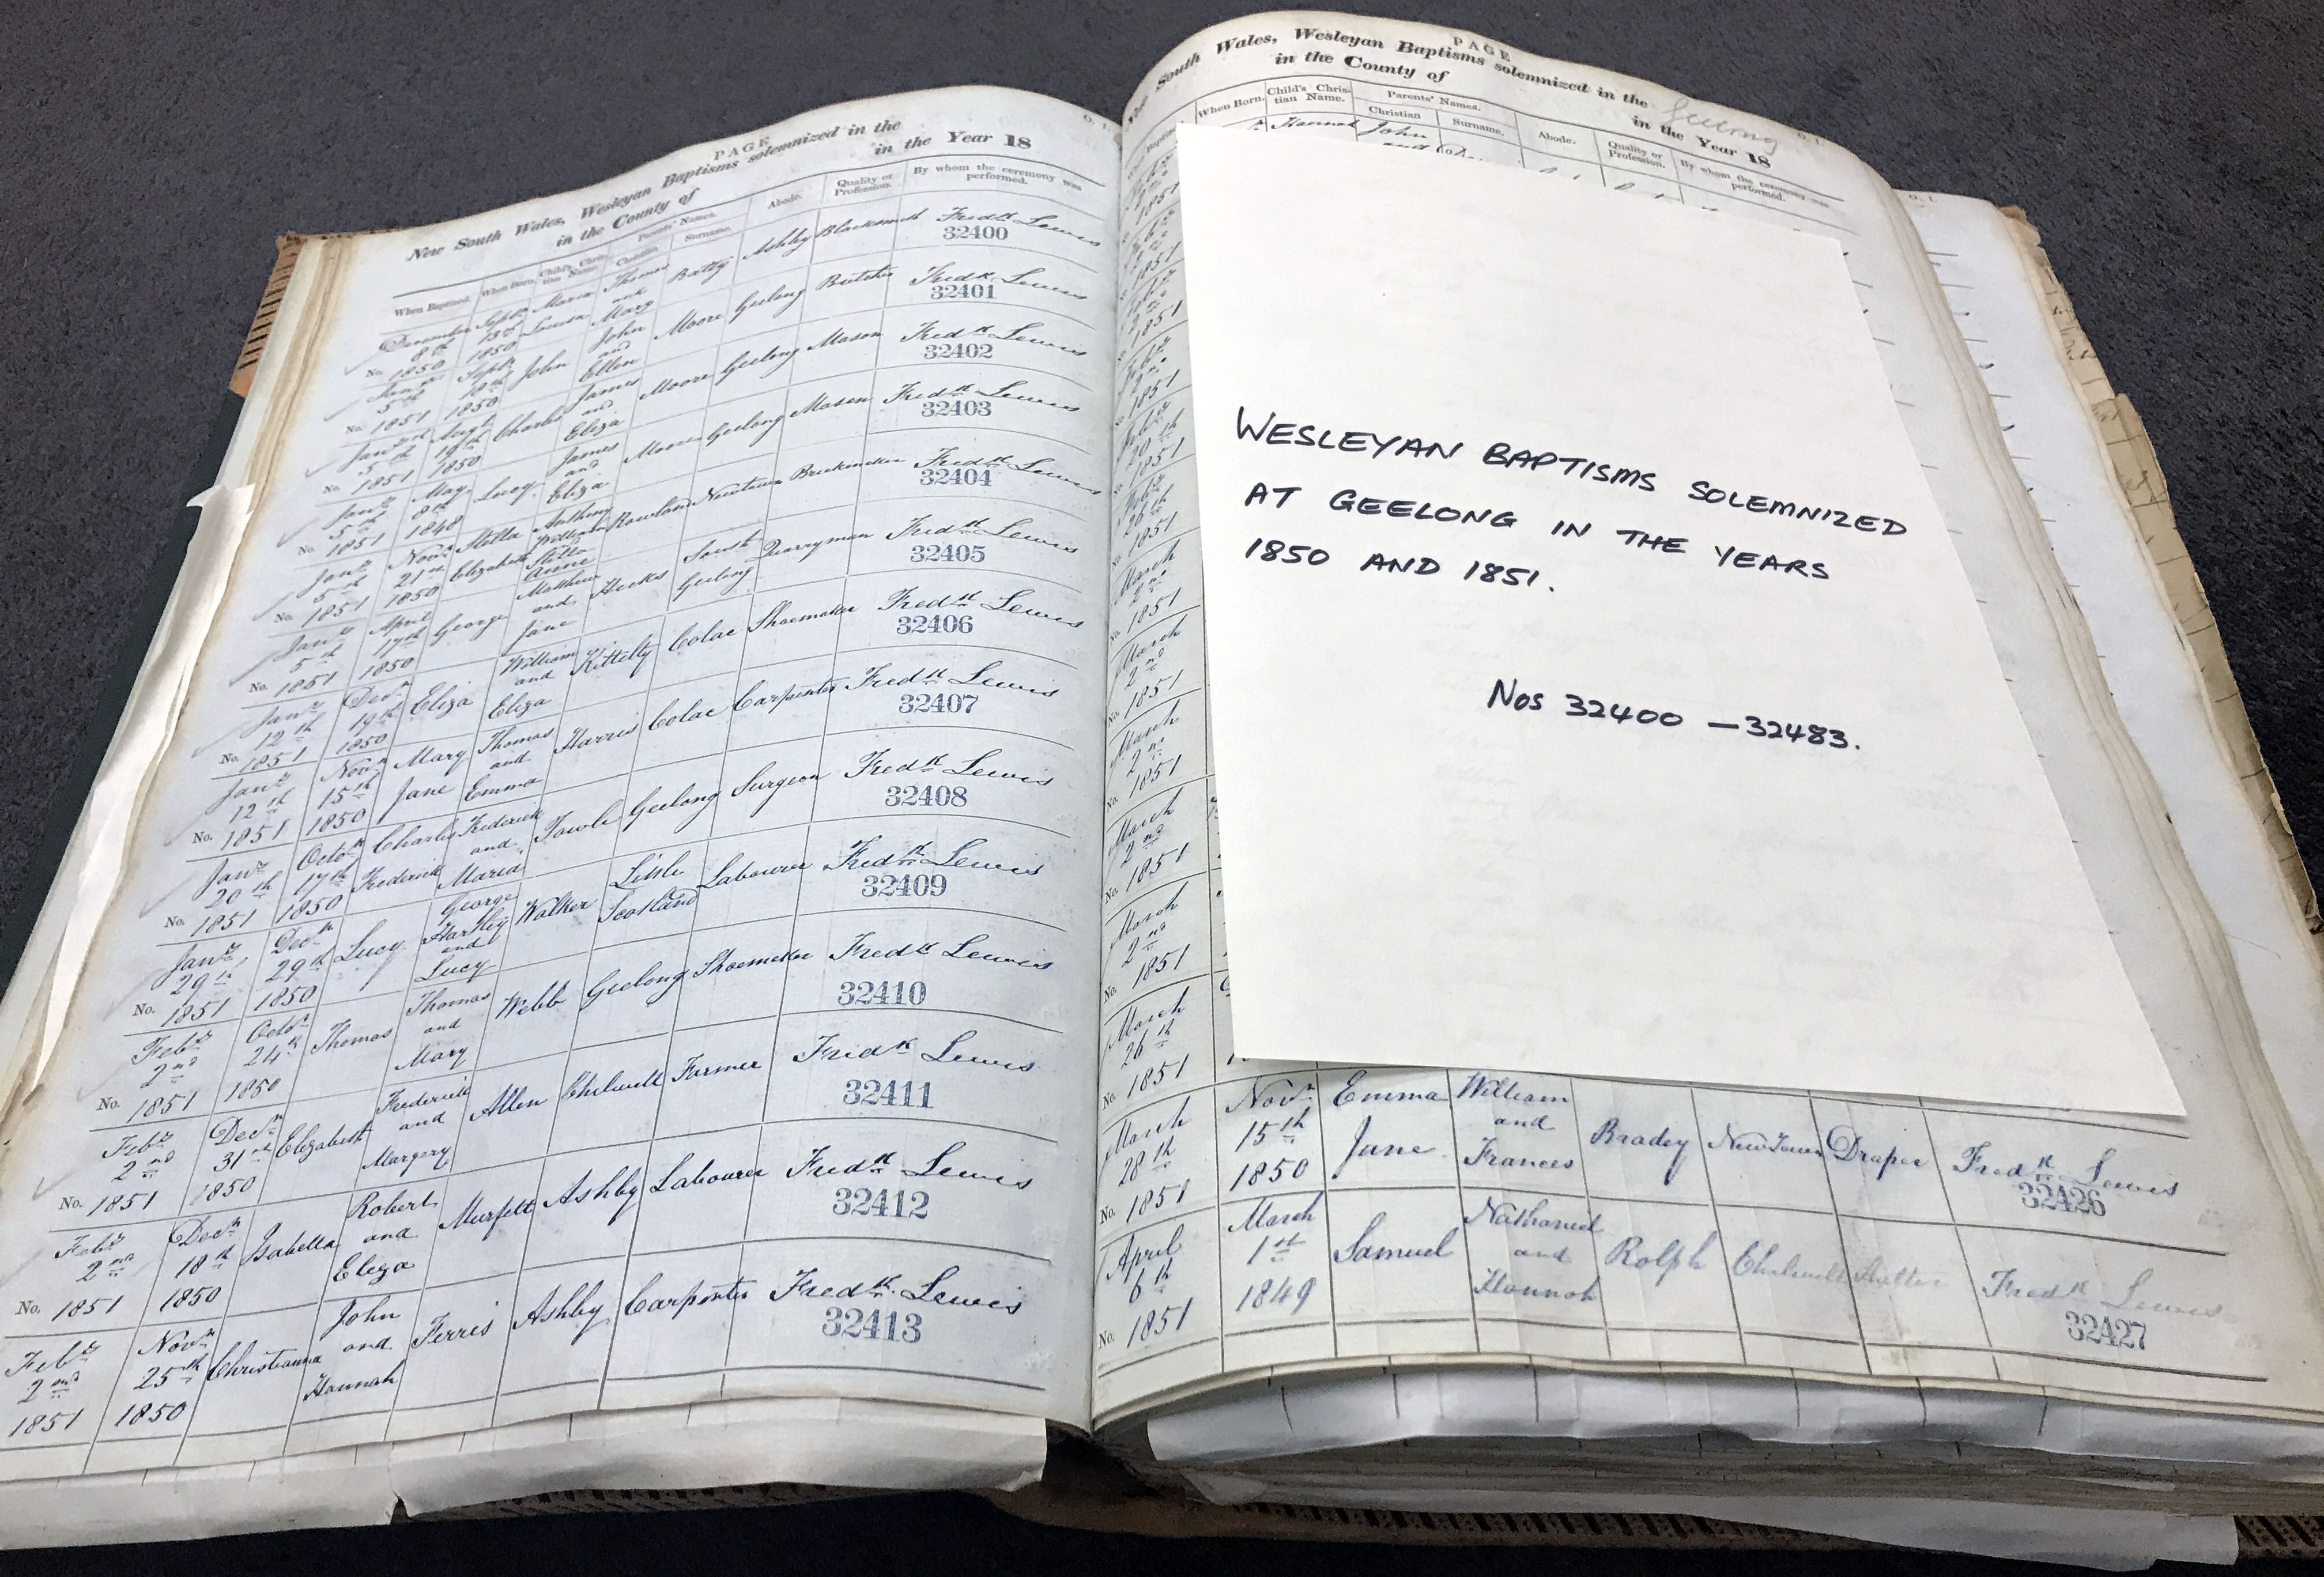 PAGE
New South Wales, Wesleyan Baptisms solemnized in the
in the County of in the Year 18
When Baptized. When Born. Child's Christian Name. Parents' Names. Christian Surname. Abode. Quality or Profession. By whom the ceremony was performed.
December 8th 1850 Septr 13th 1850 Maria Louisa Thomas and Mary Batty Ashby Blacksmith Fredk Lewis
32400
No. Jany 5th 1851 Septr 10th 1850 John John and Ellen Moore Geelong Butcher Fredk Lewis
32401
No. Jany 5th 1851 Augt 19th 1850 Charles James and Eliza Moore Geelong Mason Fredk Lewis
32402
No. Jany 5th 1851 May 8th 1848 Lucy James and Eliza Moore Geelong Mason Fredk Lewis
32403
No. Jany 5th 1851 Novr 21st 1850 Stilla Elizabeth Anthony William Stilla Anne Rowland Newtown Brickmaker Fredk Lewis
32404
No. Jany 5th 1851 April 17th 1850 George Matthew and Jane Hicks South Geelong Quarryman Fredk Lewis
32405
No. Jany 12th 1851 Decr 19th 1850 Eliza William and Eliza Kittelty Colac Shoemaker Fredk Lewis
32406
No. Jany 12th 1851 Novr 15th 1850 Mary Jane Thomas and Emma Harris Colac Carpenter Fredk Lewis
32407
No. Jany 20th 1851 Octobr 17th 1850 Charles Frederick Frederick and Maria Towle Geelong Surgeon Fredk Lewis
32408
No. Jany 29th 1851 Decr 29th 1850 Lucy George Hartley and Lucy Walker Little Scotland Labourer Fredk Lewis
32409
No. Feby 2nd 1851 Octobr 24th 1850 Thomas Thomas and Mary Webb Geelong Shoemaker Fredk Lewis
32410
No. Feby 2nd 1851 Decr 31st 1850 Elizabeth Frederick and Margery Allen Chilwell Farmer Fredk Lewis
32411
No. Feby 2nd 1851 Decr 18th 1850 Isabella Robert and Eliza Murfett Ashby Labourer Fredk Lewis
32412
No. Feby 2nd 1851 Novr 25th 1850 Christianna John and Hannah Ferris Ashby Carpenter Fredk Lewis
32413
PAGE
South Wales, Wesleyan Baptisms solemnized in the Geelong
in the County of in the Year 18
When Born. Child's Christian Name. Parents' Names. Christian Surname. Abode. Quality or Profession. By whom the ceremony was performed.
Hannah John and
WESLEYAN BAPTISMS SOLEMNIZED
AT GEELONG IN THE YEARS
1850 AND 1851.
Nos 32400 – 32483.
1851
1851
1851
1851
20th 1851
26th 1851
March 2nd 1851
March 2nd 1851
March 2nd 1851
March 2nd 1851
March 2nd 1851
No. March 26th 1851
No. March 28th 1851 Novr 15th 1850 Emma Jane William and Frances Bradey NewTown Draper Fredk Lewis
32426
No. April 6th 1851 March 1st 1849 Samuel Nathaniel and Hannah Rolph Chilwell Fredk Lewis
32427